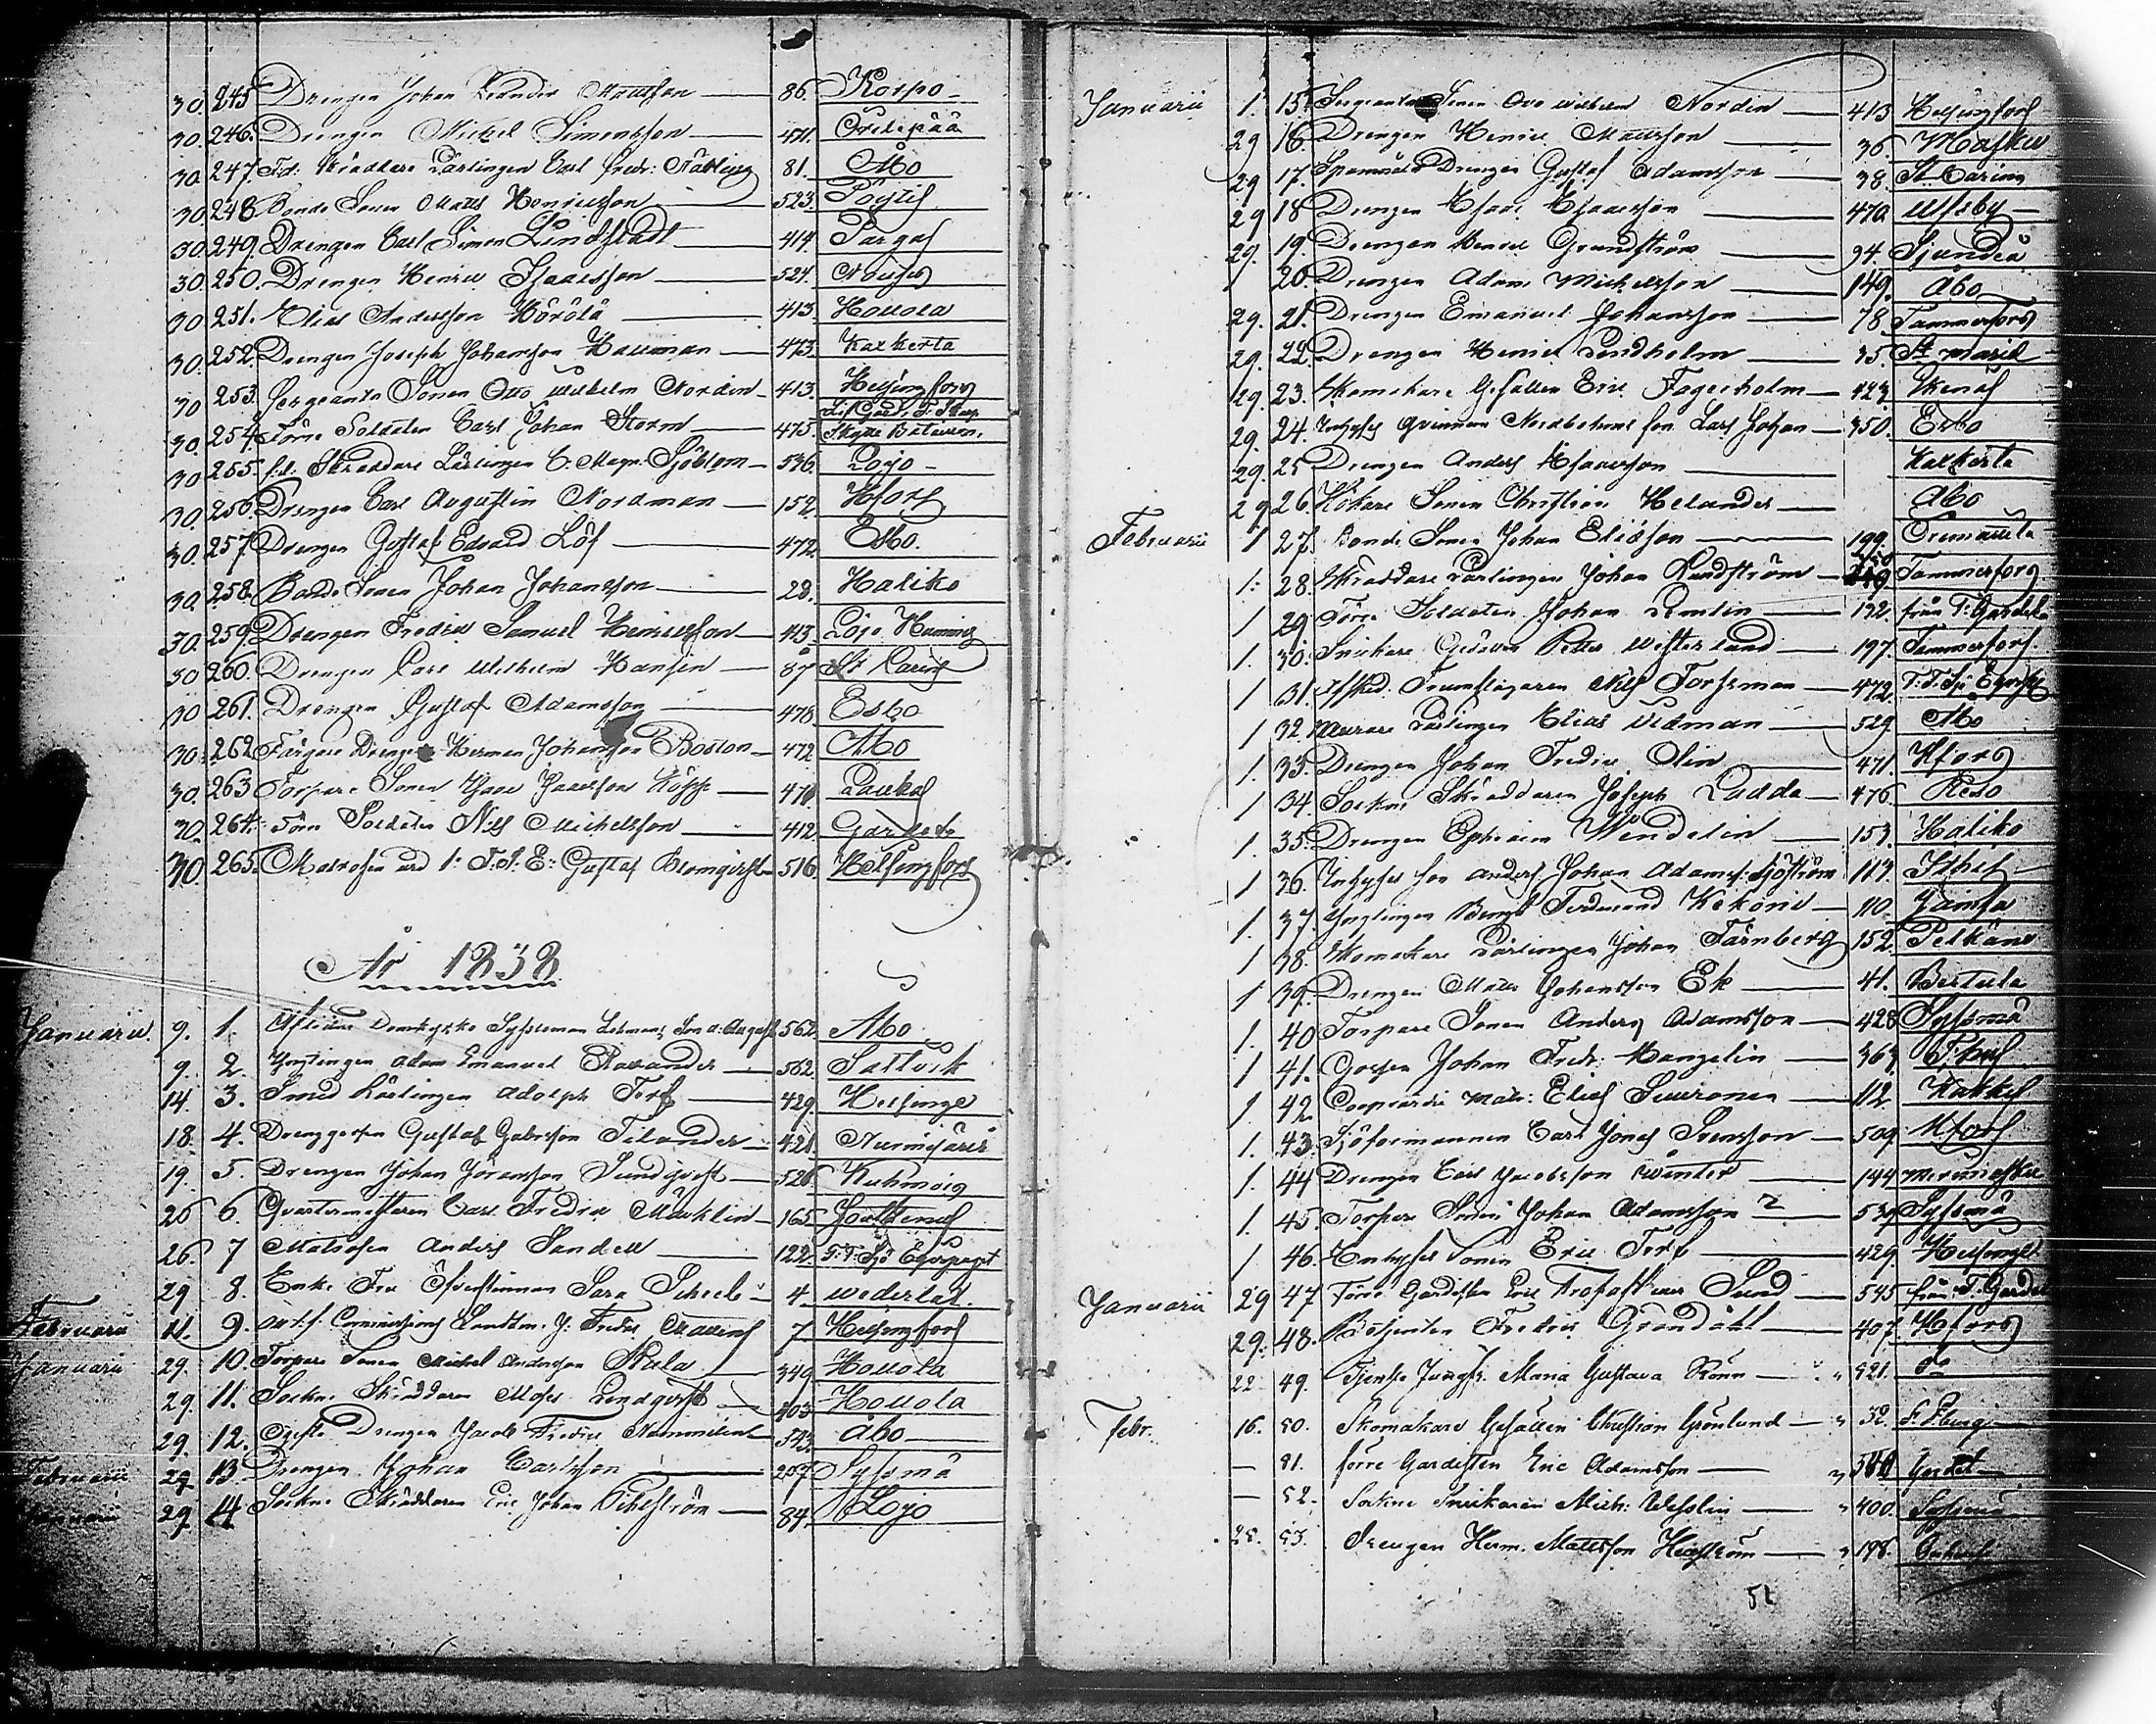 30. 245 Drengen Johan Leander Mattsson 86. Korpo
30. 246. Drengen Mickel Simonsson 471.
30. 247. Skräddare Lärlingen Carl Fredr: 81. Åbo
30 248 Bonde Sonen Matts Henricsson 523. Pöytis
30. 249. Drengen Carl Simon Lindstadt 414. Pargas
30. 250. Drengen Henric Isaacsson 524. Nousis
30 251. Elias Andersson Hörölä 413. Hollola
30. 252. Drengen Joseph Johansson Hallman 473. Kaxkerta
30 253. Sergeants Sonen Otto Wilhelm Nordin 413. Helsingfors
30. 254. Förre Soldaten Carl Johan Storm 475. Lif Gard. F: Skarp Skytte Bataillon.
30 255. f.d. Skräddare Lärlingen C: Magn: Sjöblom 536. Lojo
30. 256. Drengen Carl Augustin Nordman 152. Hfors
30. 257 Drengen Gustaf Edvard Löf 472. Esbo.
30. 258. Bonde Sonen Johan Johansson 28. Haliko
30. 259. Drengen Fredric Samuel Henricsson 413. Lojo
30 260. Drengen Carl Wilhelm Hansén 87 St Carins
30 261. Drengen Gustaf Adamsson 478. Esbo
30. 262 Färgare Drengen Herman Johansson Boston 472 Åbo
30. 263 Torpare Sonen Isaac Isaacsson Köpp 471 Laukas
30. 264. Förre Soldaten Nils Michelsson 412. Gardet
30. 265. Matrosen vid 1: F: S: E: Gustaf Blomqvist 516. Helsingfors
År 1838
Januarii. 9. 1. Aflidne Domkyrko Syssloman Lehmans Son a: August 562. Åbo
9. 2. Ynglingen Adam Emanuel 562. Sattvik
14 3. Smed Lärlingen Adolph Torf 429. Helsinge
18. 4. Drenggossen Gustaf Gabrsson Tilander 421. Nurmijärvi
19. 5. Drengen Johan Jöransson Sundqvist 526. Kuhmois
26 6. Qvartermästaren Carl Fredric Märklin 165.
26. 7 Matrosen Anders Sandell 122. F: F: Sjö Eqvipaget
29 8. Enke Fru Öfverstinnan Sara Scheele 4.
Februarii 11. 9. Commissions Landtm. J: Fredr 7 Helsingfors
Januarii 29. 10. Torpare Sonen Michel Andersson 349 Hollola
29. 11. Sockne Skräddaren Moses Lindqvist 403 Hollola
29. 12. Gifte Drengen Jacob Fredric 543 Åbo
Februarii 29 13 Drengen Johan Carlsson 207 Sysmä
Januarii 29 14 Sockne Skräddaren Eric Johan 84. Lojo
Januarii 1. 15. Sergeants Sonen Otto Wilhelm Nordin 413 Helsingfors
29 16 Drengen Henric Mattsson 36. Masku
29 17. Drengen Gustaf Adamsson 38. St Carins
29 18 Drengen Isaac Isaacsson 470. Ulfsby
29. 19. Drengen Henric Grundström 94. Sjundeå
1 20. Drengen Adam Michelsson 149. Åbo
29. 21. Drengen Emanuel Johansson 78 Tammerfors
29. 22. Drengen Henric Lindholm 35. St Marie
29. 23. Skomakare Gesällen Eric Fagerholm 423. Ekenäs
29. 24. Inhyses Qvinnan Nordbohms son Lars Johan 350. Esbo
29. 25 Drengen Anders Isaacsson Kaxkerta
29 26. Hökare Sonen Christian Helander Åbo
Februarii 1 27. Bonde Sonen Johan Eliasson 199. Orimattila
1: 28. Skräddare Lärlingen Johan Lundström Tammerfors
1 29 Förre Soldaten Johan Lemlin 192. från F: Gardet
1. 30. Snickare Gesällen Petter Westerlund 197. Tammerfors.
1 31. Afsked. Trumslagaren Nils Forsman 472. F: F: Sjö Eqvip
1 32. Murare Lärlingen Elias Widman 529. Åbo
1. 33. Drengen Johan Fredric Olin 471. Hfors
1 34. Sockne Skräddaren Joseph Ladda 476. Reso
1. 35. Drengen Ephraim Wendelin 153. Haliko
1 36. Inhyses son Anders Johan Adamss: Sjöström 113. Ithis
1. 37. Ynglingen Bengt Ferdinand Kekoni 110. Jämsä
1 38. Skomakare Lärlingen Johan Färnberg 152. Pelkäne
1 39. Drengen Matts Johansson Ek 41. Bertula
1. 40 Torpare Sonen Anders Adamsson 428 Sysmä
1 41. Gossen Johan Fredr: Mangelin 363.
1 42. Coopvardie Matr: Elias Suuronen 112.
1. 43. Sjöfarmannen Carl Jonas Svensson 509 Hfors
1. 44 Drengen Carl Jacobsson Winter 144 Merimasku
1. 45. Torpare Sonen Johan Adamsson 539 Sysmä
1 46. Inhyses Sonen Eric Torf 429. Helsinge
Januarii 29 47 Förre Gardisten Eric Sund 545 från F: Gardet
29. 48. Betjenten Fredric Gröndahl 407. Hfors
22 49. Tjenste Jungfr. Maria Gustava Rönn " 521. do
Febr. 16. 50. Skomakare Gesällen Christian Grönlund " 32. S: Pburg
— 51. förre Gardisten Eric Adamsson " Gardet
— 52. Sockne Snickaren Mich: Wesslin " 400. Sysmä
25. 53. Drengen Herm. Mattsson Hegström " 198.
51